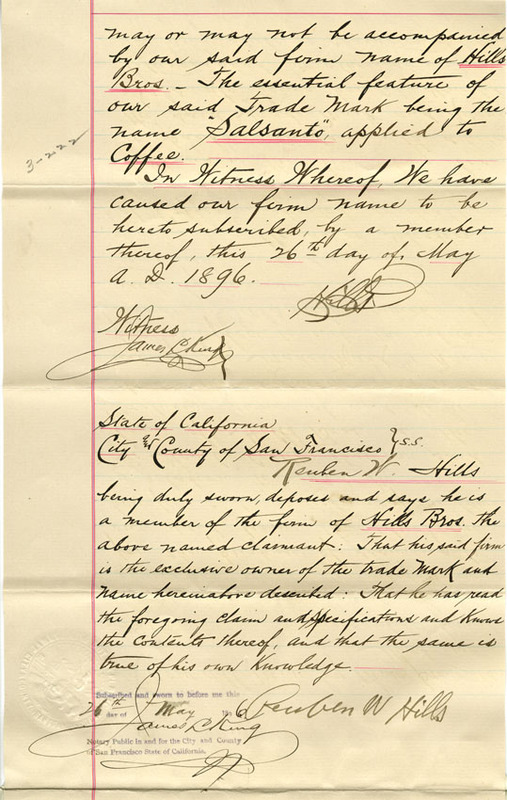 may or may not be accompanied
by our said firm name of Hills
Bros. - The essential feature of
our said Trade Mark being the
name "Salsanto", applied to
Coffee.
3-222
In Witness Whereof, We have
caused our firm name to be
hereto subscribed, by a member
thereof, this 26th day of, May
A. D. 1896.
Witness
James L King }
State of California
City and County of San Francisco } S.S.
Reuben W. Hills
being duly sworn, deposes and says he is
a member of the firm of Hills Bros. the
above named claimant: That his said firm
is the exclusive owner of the trade Mark and
name hereinabove described: That he has read
the foregoing claim and specifications and knows
the contents thereof, and that the same is
true of his own knowledge.
Subscribed and sworn to before me this
26th day of May 1896 Reuben W Hills
James L King
Notary Public in and for the City and County
of San Francisco State of California.